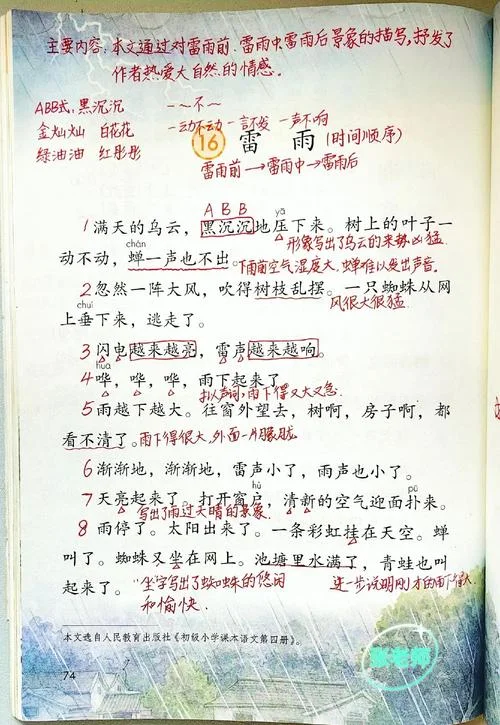 主要内容:本文通过对雷雨前.雷雨中雷雨后景象的描写,抒发了
作者热爱大自然的情感。
ABB式:黑沉沉 一～不～
金灿灿 白花花 一动不动 一言不发 一声不响
绿油油 红彤彤
16 雷 雨 (时间顺序)
雷雨前→雷雨中→雷雨后
A B B
yā
1 满天的乌云,黑沉沉地压下来。树上的叶子一
形象写出了乌云的来势凶猛
chán
动不动,蝉一声也不出。下雨前空气湿度大,蝉难以发出声音。
2 忽然一阵大风,吹得树枝乱摆。一只蜘蛛从网
风很大很猛
chuí
上垂下来,逃走了。
3 闪电越来越亮,雷声越来越响。
huā
4 哗,哗,哗,雨下起来了。
拟声词,雨下得又大又急
5 雨越下越大。往窗外望去,树啊,房子啊,都
看不清了。雨下得很大,外面一片朦胧
6 渐渐地,渐渐地,雷声小了,雨声也小了。
hù pū
7 天亮起来了。打开窗户,清新的空气迎面扑来。
写出了雨过天晴的景象.
8 雨停了。太阳出来了。一条彩虹挂在天空。蝉
叫了。蜘蛛又坐在网上。池塘里水满了,青蛙也叫
起来了。"坐"字写出了蜘蛛的悠闲 进一步说明刚才的雨
和愉快.
本文选自人民教育出版社《初级小学课本语文第四册》。
74
张老师